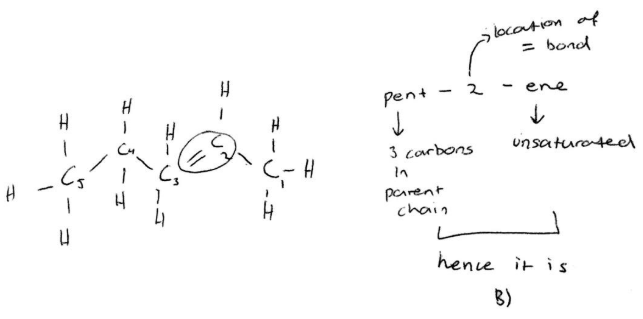 H
H
H
H
H
H – C5 C4 C3 = C2 C1 – H
H
H
H
H
H
location of
= bond
pent – 2 – ene
3 carbons
in
parent
chain
unsaturated
hence it is
B)